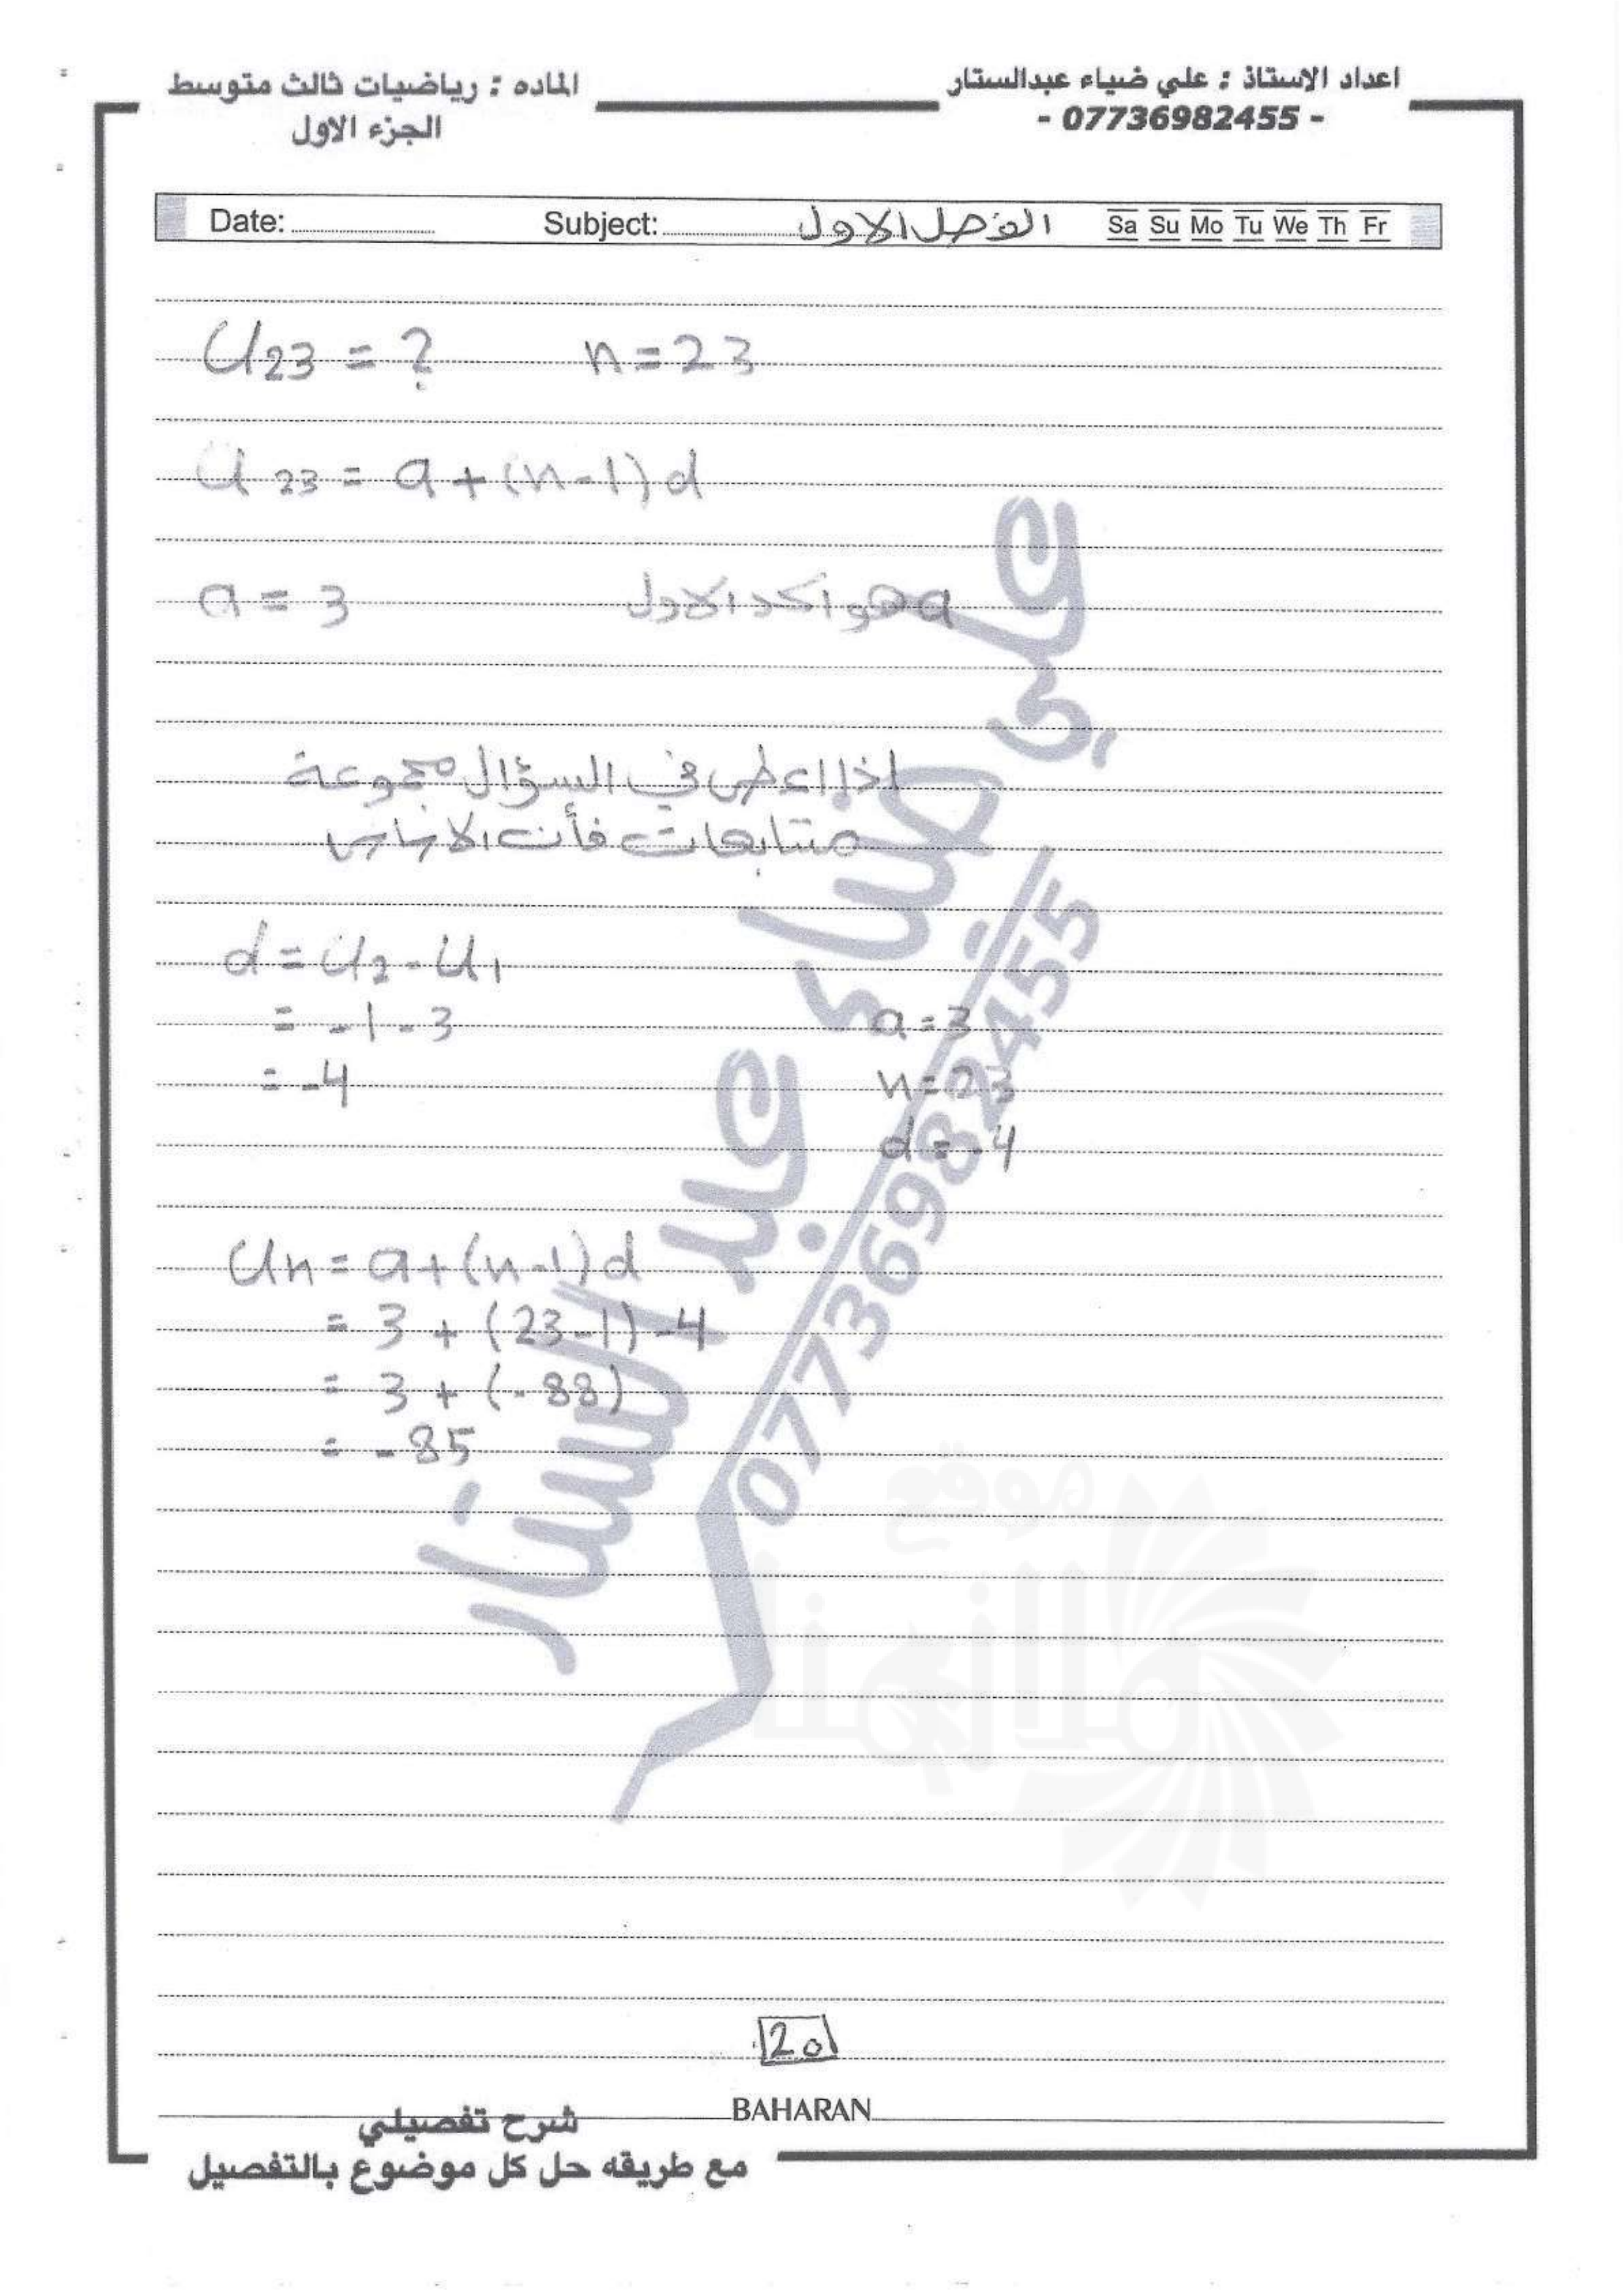 اعداد الاستاذ : علي ضياء عبدالستار
- 07736982455 -
الماده : رياضيات ثالث متوسط
الجزء الاول
Date: Subject: الفصل الاول Sa Su Mo Tu We Th Fr
U23 = ? n = 23
U23 = a + (n-1) d
a = 3 a هو الحد الاول
اذا اعطى في السؤال مجموعة
متتابعات فأن الاساس
d = U2 - U1
= -1 - 3 a = 3
= -4 n = 23
d = -4
Un = a + (n-1) d
= 3 + (23-1) -4
= 3 + (-88)
= -85
علي ضياء عبد الستار
07736982455
موقع
20
BAHARAN
شرح تفصيلي
مع طريقه حل كل موضوع بالتفصيل